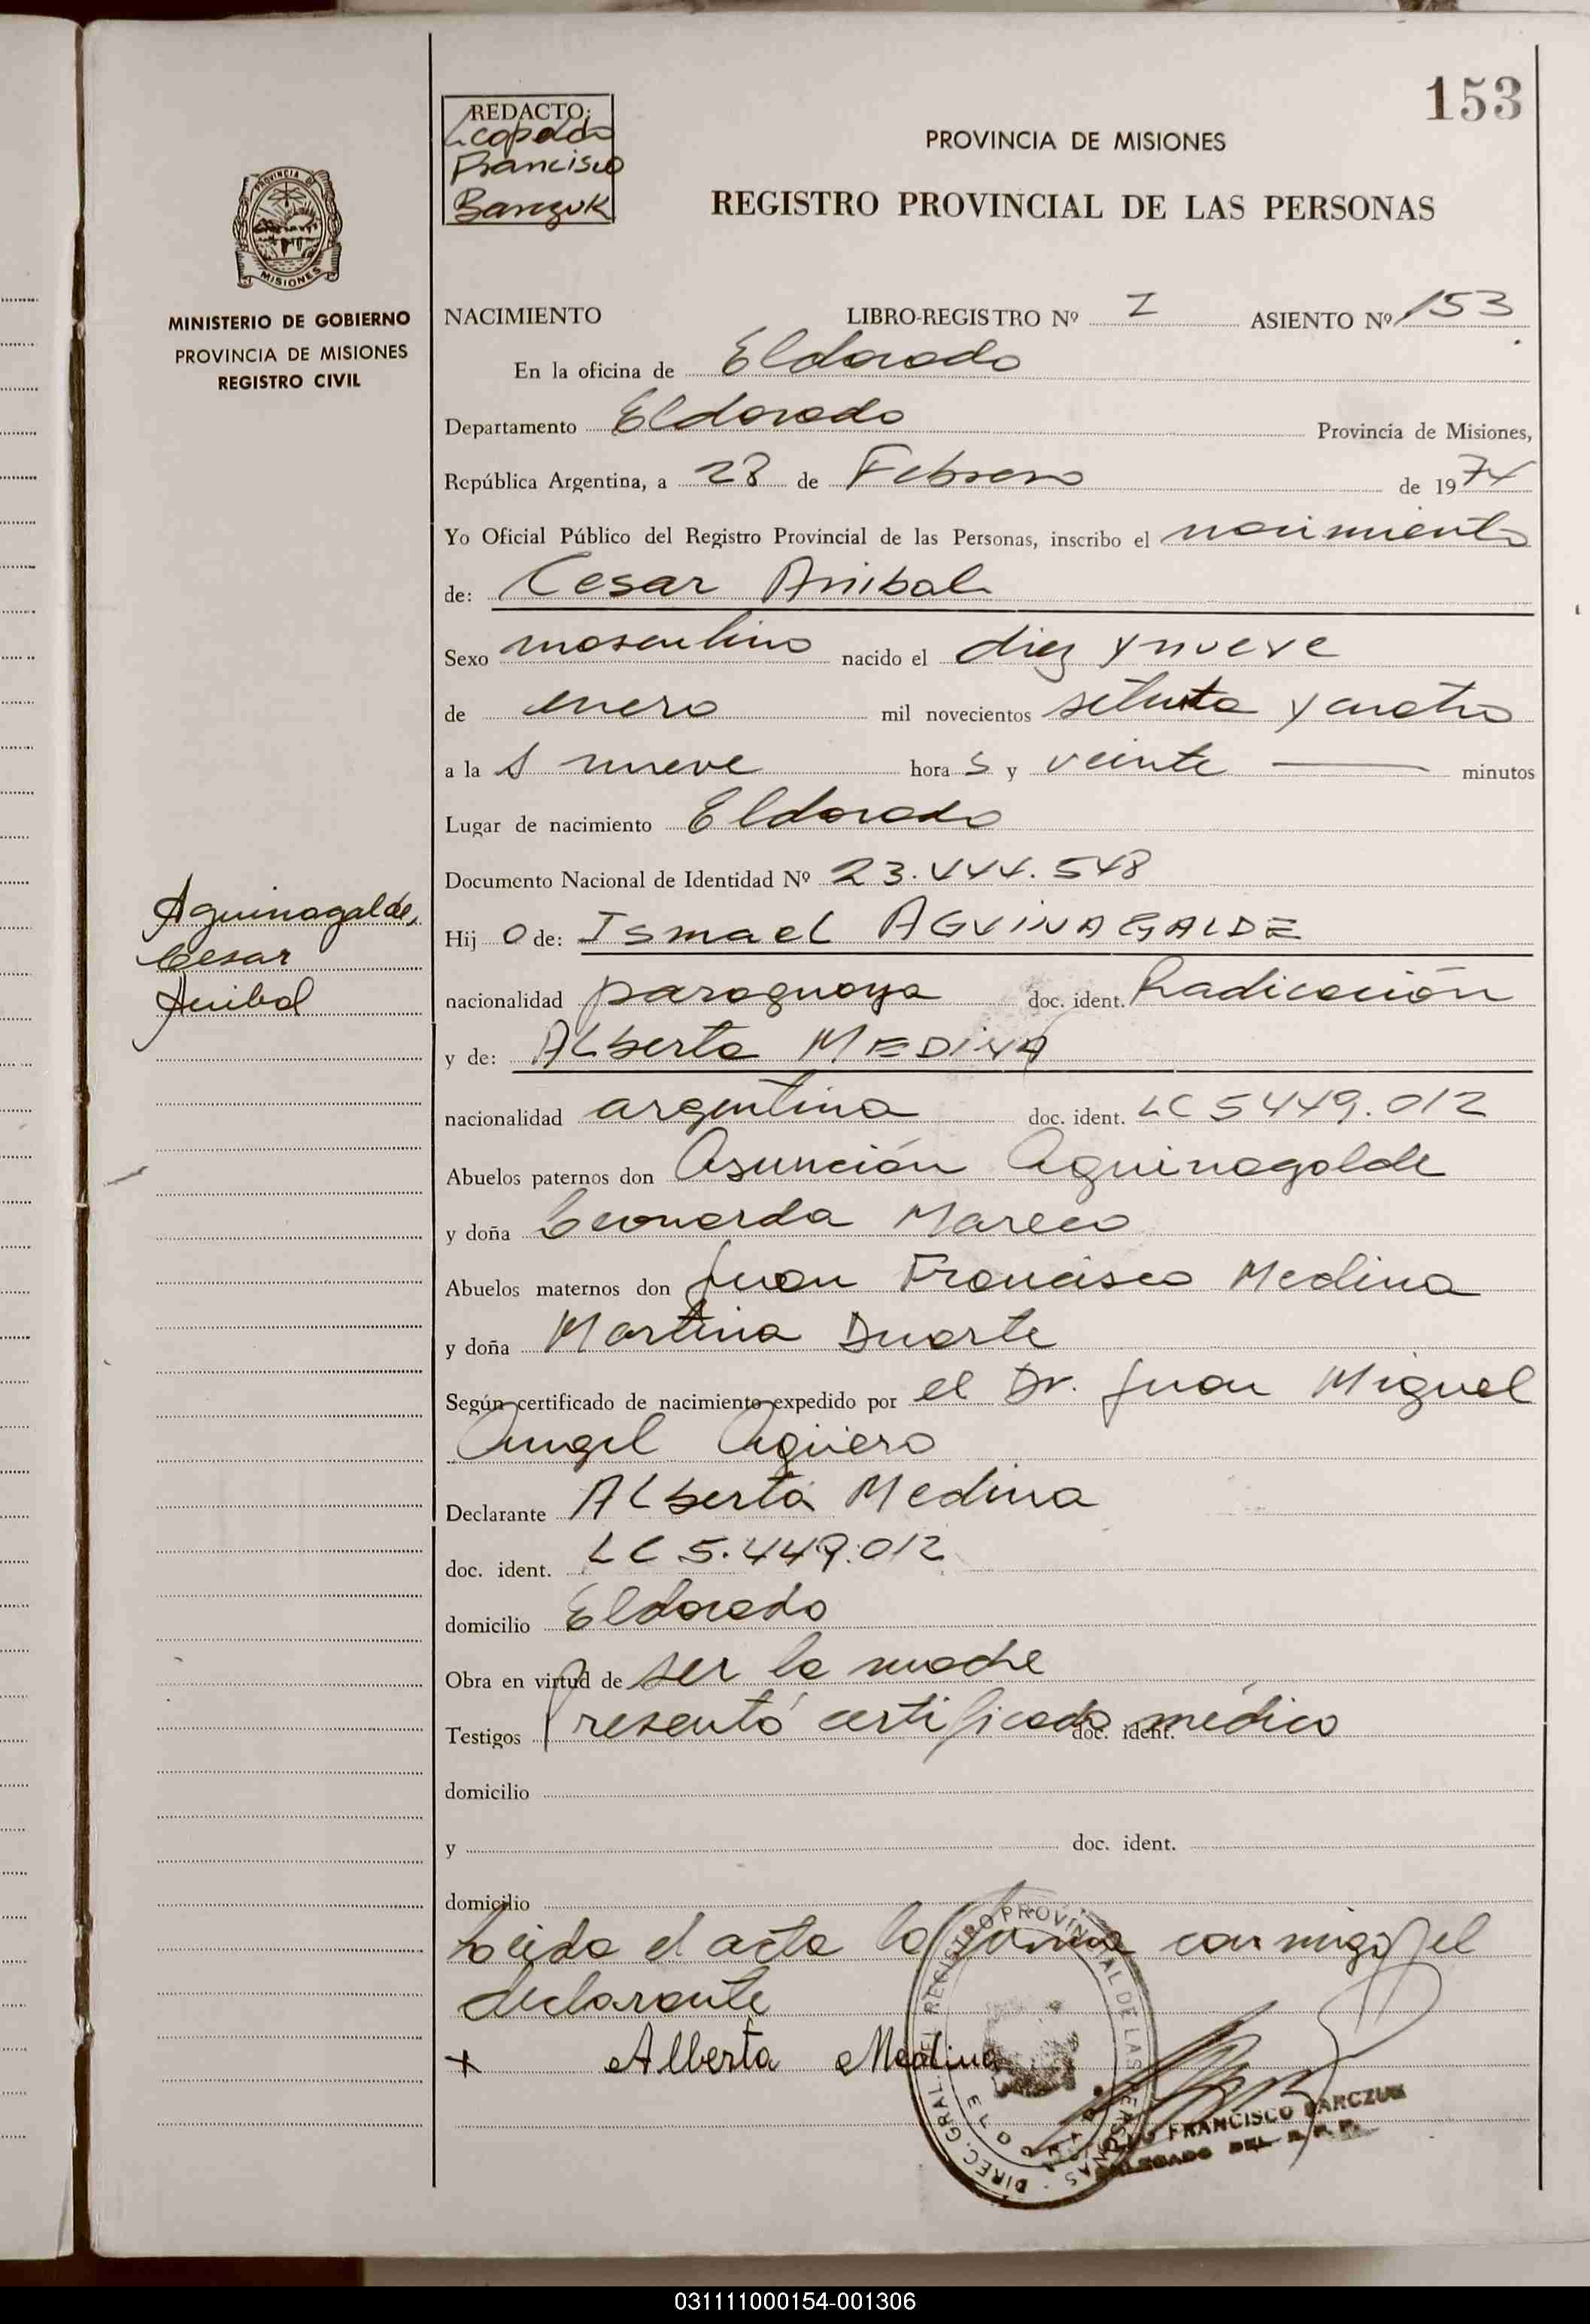 153
REDACTO:
Leopoldo
Francisco
Barczuk
PROVINCIA DE MISIONES
REGISTRO PROVINCIAL DE LAS PERSONAS
PROVINCIA DE
MISIONES
MINISTERIO DE GOBIERNO
PROVINCIA DE MISIONES
REGISTRO CIVIL
NACIMIENTO LIBRO-REGISTRO Nº I ASIENTO Nº 153
En la oficina de Eldorado
Departamento Eldorado Provincia de Misiones,
República Argentina, a 28 de Febrero de 1974
Yo Oficial Público del Registro Provincial de las Personas, inscribo el nacimiento
de: Cesar Anibal
Sexo masculino nacido el diez y nueve
de enero mil novecientos setenta y cuatro
a la s nueve hora s y veinte minutos
Lugar de nacimiento Eldorado
Documento Nacional de Identidad Nº 23.444.548
Aguinagalde,
Cesar
Anibal
Hij o de: Ismael AGUINAGALDE
nacionalidad paraguaya doc. ident. Radicación
y de: Alberta MEDINA
nacionalidad argentina doc. ident. LC 5449.012
Abuelos paternos don Asunción Aguinagalde
y doña Leonarda Mareco
Abuelos maternos don Juan Francisco Medina
y doña Martina Duarte
Según certificado de nacimiento expedido por el Dr. Juan Miguel
Angel Agüero
Declarante Alberta Medina
doc. ident. LC 5.449.012
domicilio Eldorado
Obra en virtud de ser la madre
Testigos Presentó certificado médico doc. ident.
domicilio
y doc. ident.
domicilio
Leida el acta la firma conmigo el
declarante
x Alberta Medina
DIREC. GRAL. DEL REGISTRO PROVINCIAL DE LAS PERSONAS
FRANCISCO BARCZUK
DELEGADO DEL R. P. P.
031111000154-001306